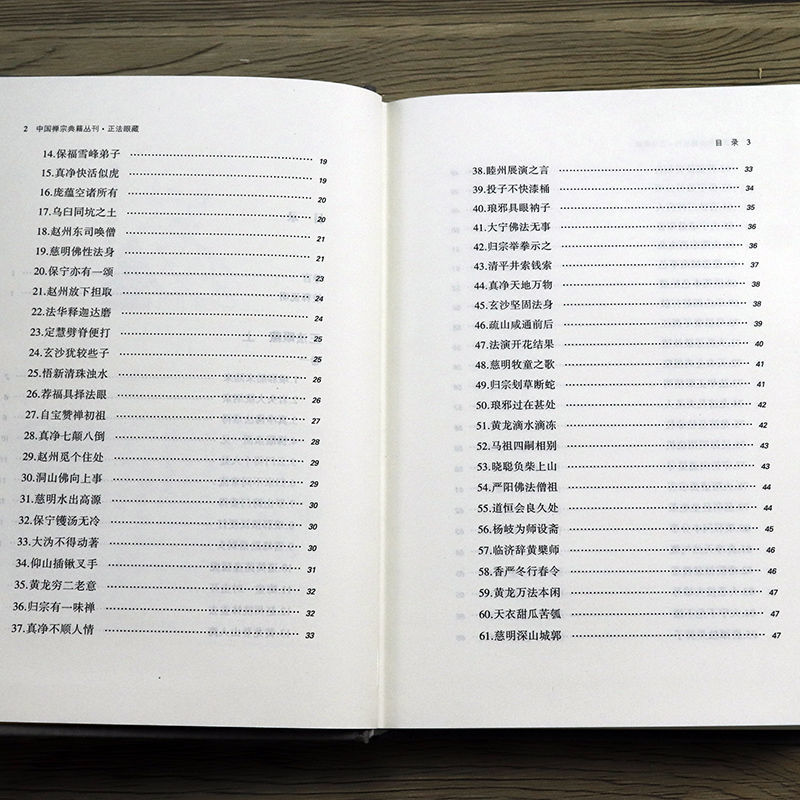 2 中国禅宗典籍丛刊·正法眼藏
14.保福雪峰弟子 19
15.真净快活似虎 19
16.庞蕴空诸所有 20
17.乌臼同坑之土 20
18.赵州东司唤僧 21
19.慈明佛性法身 21
20.保宁亦有一颂 23
21.赵州放下担取 24
22.法华释迦达磨 24
23.定慧劈脊便打 25
24.玄沙犹较些子 25
25.悟新清珠浊水 26
26.荐福具择法眼 26
27.自宝赞禅初祖 27
28.真净七颠八倒 28
29.赵州觅个住处 29
30.洞山佛向上事 29
31.慈明水出高源 30
32.保宁镬汤无冷 30
33.大沩不得动著 30
34.仰山插锹叉手 31
35.黄龙穷二老意 32
36.归宗有一味禅 32
37.真净不顺人情 33
目 录 3
38.睦州展演之言 33
39.投子不快漆桶 34
40.琅邪具眼衲子 35
41.大宁佛法无事 36
42.归宗举拳示之 36
43.清平井索钱索 37
44.真净天地万物 38
45.玄沙坚固法身 38
46.疏山咸通前后 39
47.法演开花结果 40
48.慈明牧童之歌 40
49.归宗刬草断蛇 41
50.琅邪过在甚处 42
51.黄龙滴水滴冻 42
52.马祖四嗣相别 43
53.晓聪负柴上山 43
54.严阳佛法僧祖 44
55.道恒会良久处 44
56.杨岐为师设斋 45
57.临济辞黄檗师 46
58.香严冬行春令 46
59.黄龙万法本闲 47
60.天衣甜瓜苦瓠 47
61.慈明深山城郭 47